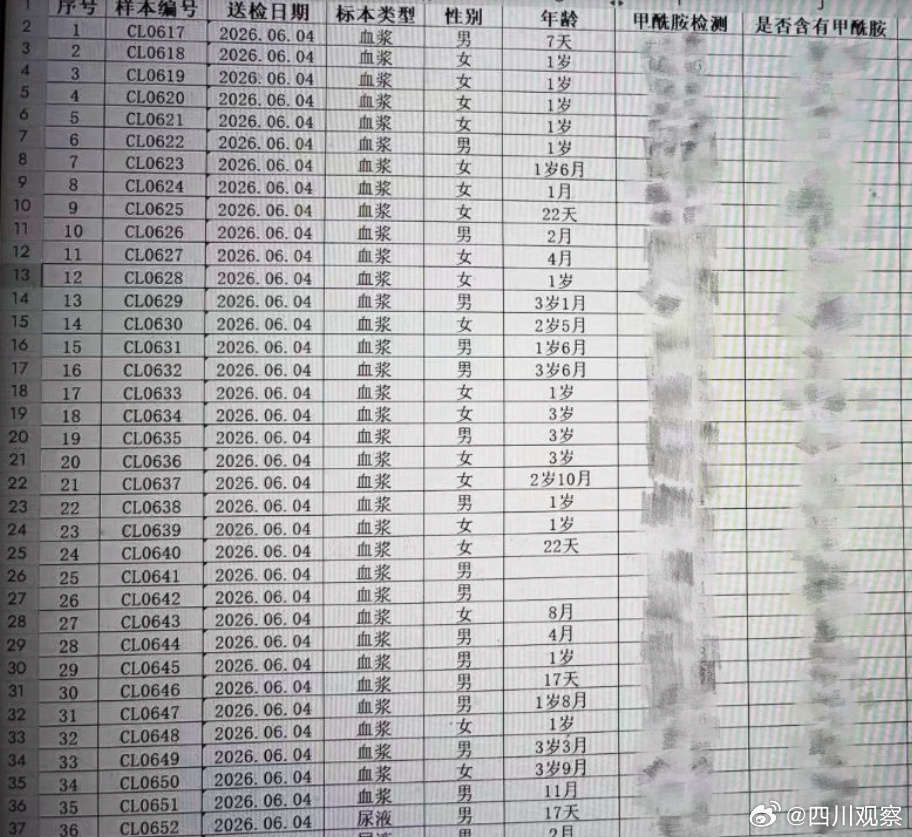 1 序号 样本编号 送检日期 标本类型 性别 年龄 甲酰胺检测 是否含有甲酰胺
2 1 CL0617 2026.06.04 血浆 男 7天
3 2 CL0618 2026.06.04 血浆 女 1岁
4 3 CL0619 2026.06.04 血浆 女 1岁
5 4 CL0620 2026.06.04 血浆 女 1岁
6 5 CL0621 2026.06.04 血浆 女 1岁
7 6 CL0622 2026.06.04 血浆 男 1岁
8 7 CL0623 2026.06.04 血浆 女 1岁6月
9 8 CL0624 2026.06.04 血浆 女 1月
10 9 CL0625 2026.06.04 血浆 女 22天
11 10 CL0626 2026.06.04 血浆 男 2月
12 11 CL0627 2026.06.04 血浆 女 4月
13 12 CL0628 2026.06.04 血浆 女 1岁
14 13 CL0629 2026.06.04 血浆 男 3岁1月
15 14 CL0630 2026.06.04 血浆 女 2岁5月
16 15 CL0631 2026.06.04 血浆 男 1岁6月
17 16 CL0632 2026.06.04 血浆 男 3岁6月
18 17 CL0633 2026.06.04 血浆 女 1岁
19 18 CL0634 2026.06.04 血浆 女 3岁
20 19 CL0635 2026.06.04 血浆 男 3岁
21 20 CL0636 2026.06.04 血浆 女 3岁
22 21 CL0637 2026.06.04 血浆 女 2岁10月
23 22 CL0638 2026.06.04 血浆 男 1岁
24 23 CL0639 2026.06.04 血浆 女 1岁
25 24 CL0640 2026.06.04 血浆 女 22天
26 25 CL0641 2026.06.04 血浆 男
27 26 CL0642 2026.06.04 血浆 男
28 27 CL0643 2026.06.04 血浆 女 8月
29 28 CL0644 2026.06.04 血浆 男 4月
30 29 CL0645 2026.06.04 血浆 男 1岁
31 30 CL0646 2026.06.04 血浆 男 17天
32 31 CL0647 2026.06.04 血浆 男 1岁8月
33 32 CL0648 2026.06.04 血浆 女 1岁
34 33 CL0649 2026.06.04 血浆 男 3岁3月
35 34 CL0650 2026.06.04 血浆 女 3岁9月
36 35 CL0651 2026.06.04 血浆 男 11月
37 36 CL0652 2026.06.04 尿液 男 17天
2月
@四川观察